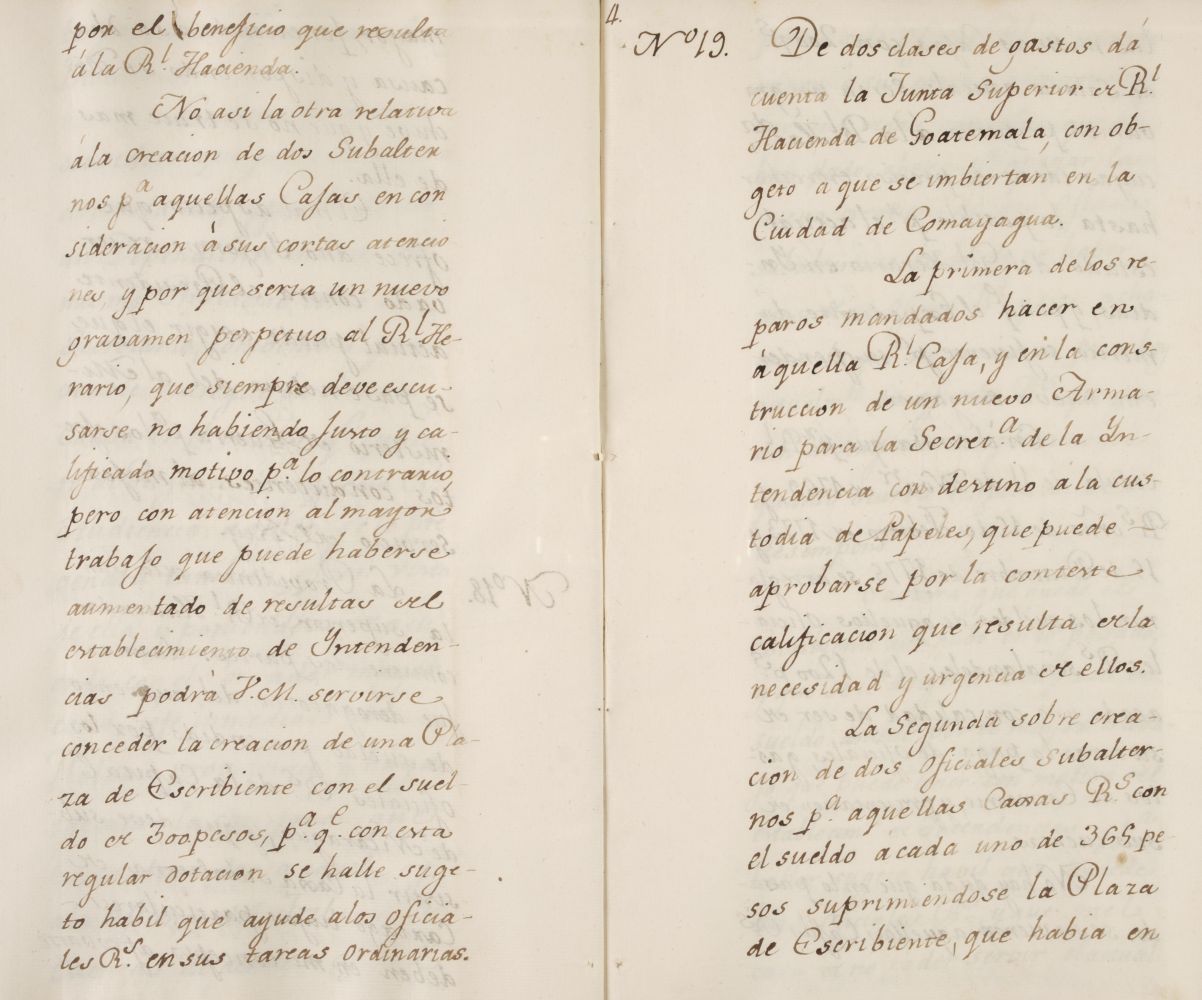 por el beneficio que resulta
á la Rl. Hacienda.
No asi la otra relativa
ála creacion de dos Subalter
nos pa. aquellas Casas en con
sideracion á sus cortas atencio
nes, y por que seria un nuevo
gravamen perpetuo al Rl. He-
rario, que siempre deve escu-
sarse no habiendo justo y ca-
lificado motivo pa. lo contrario,
pero con atencion al mayor
trabajo que puede haberse
aumentado de resultas del
establecimiento de Yntenden-
cias podrá V.M. servirse
conceder la creacion de una Pla-
za de Escribiente con el suel-
do de 300 pesos, pa. qe. con esta
regular dotacion se halle suge-
to habil que ayude alos oficia-
les Rs. en sus tareas ordinarias.
4.
No 19. De dos clases de gastos dá
cuenta la Junta Superior de Rl.
Hacienda de Goatemala, con ob-
geto a que se imbiertan en la
Ciudad de Comayagua.
La primera de los re-
paros mandados hacer en
áquella Rl. Casa, y en la cons-
truccion de un nuevo Arma-
rio para la Secreta. de la Yn-
tendencia con destino ála cus-
todia de Papeles, que puede
aprobarse por la conteste
calificacion que resulta dela
necesidad y urgencia de ellos.
La Segunda sobre crea-
cion de dos oficiales subalter-
nos pa. aquellas Caxas Rs. con
el sueldo ácada uno de 365 pe-
sos suprimiendose la Plaza
de Escribiente, que habia en